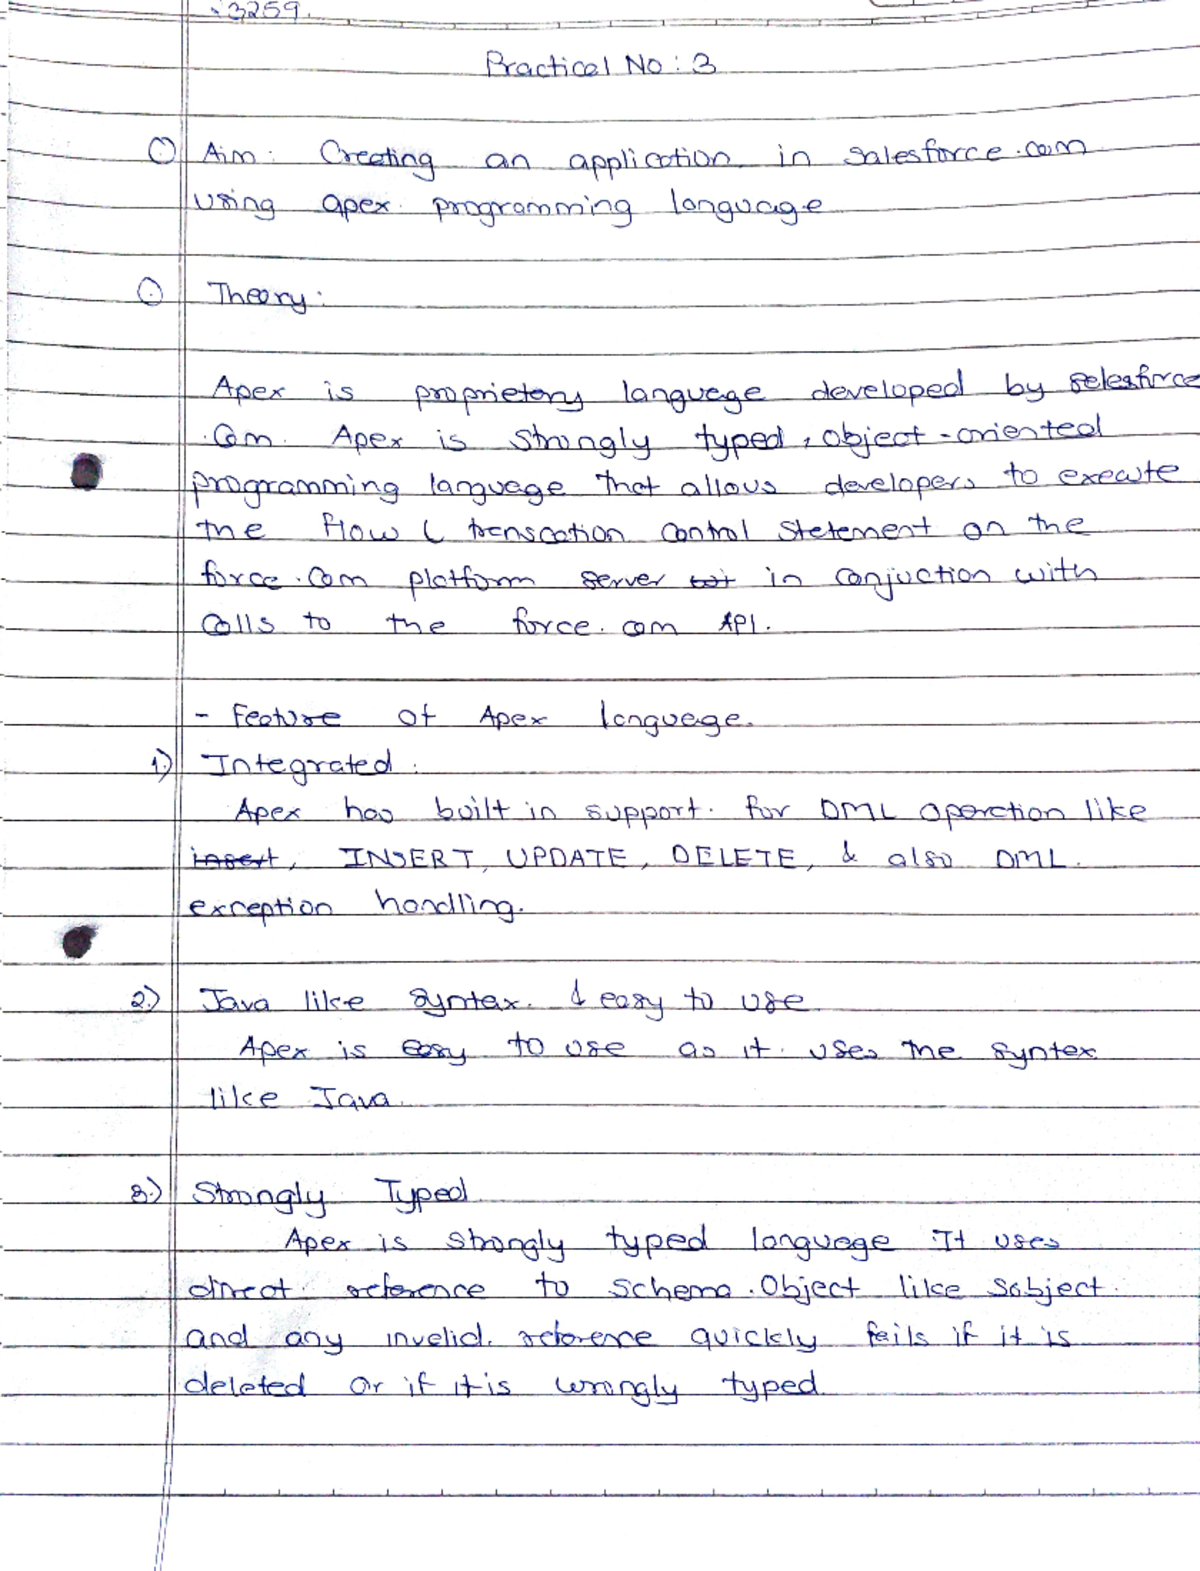 3259.
Practical No : 3
Aim : Creating an application in salesforce.com
using apex programming language
Theory :
Apex is proprietory language developed by selesforce
.Com. Apex is strongly typed, object-oriented
programming language that allows developers to execute
the flow ( transcation control statement on the
force.com platform server in conjuction with
calls to the force.com API.
- Feature of Apex language.
1.) Integrated :
Apex has built in support for DML operation like
insert, INSERT, UPDATE, DELETE, & also DML.
exception handling.
2.) Java like syntax. & easy to use
Apex is easy to use as it uses the syntex
like Java.
3.) Strongly Typed
Apex is strongly typed language. It uses
direct reference to schema. Object like Sobject.
and any invelid. reference quickly fails if it is
deleted or if it is wrongly typed